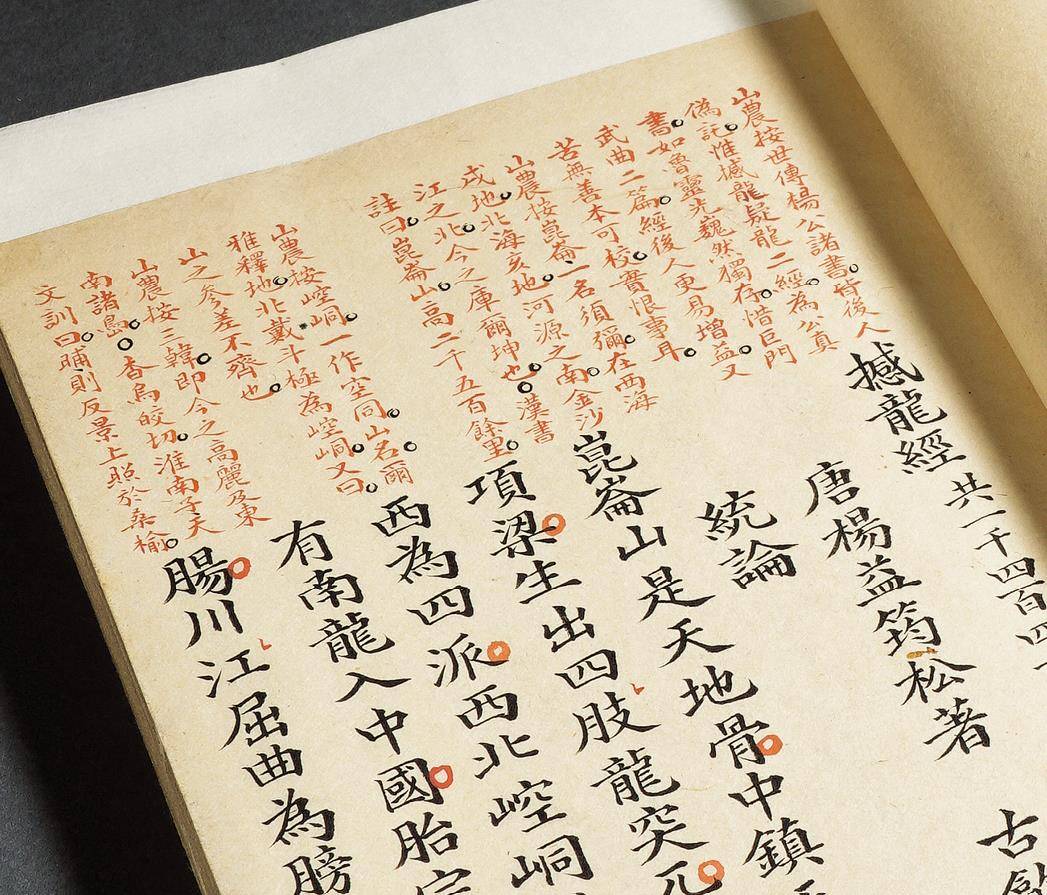 撼龍經 共一千四百四
唐楊益筠松著 古
統論
崑崙山是天地骨中鎮
項梁生出四肢龍突兀
西為四派西北崆峒
有南龍入中國胎宗
腸川江屈曲為膀
山農按世傳楊公諸書皆後人
偽託惟撼龍疑龍二經為公真
書如魯靈光巍然獨存惜巨門
武曲二篇經後人更易增益又
苦無善本可校實恨事耳
山農按崑崙一名須彌在西海
戌地北海亥地河源之南金沙
江之北今之庫爾坤也漢書
註曰崑崙山高二千五百餘里
山農按崆峒一作空同山名爾
雅釋地北戴斗極為崆峒又曰
山之參差不齊也
山農按三韓即今之高麗及東
南諸島杳烏皎切淮南子天
文訓曰晡則反景上照於桑榆